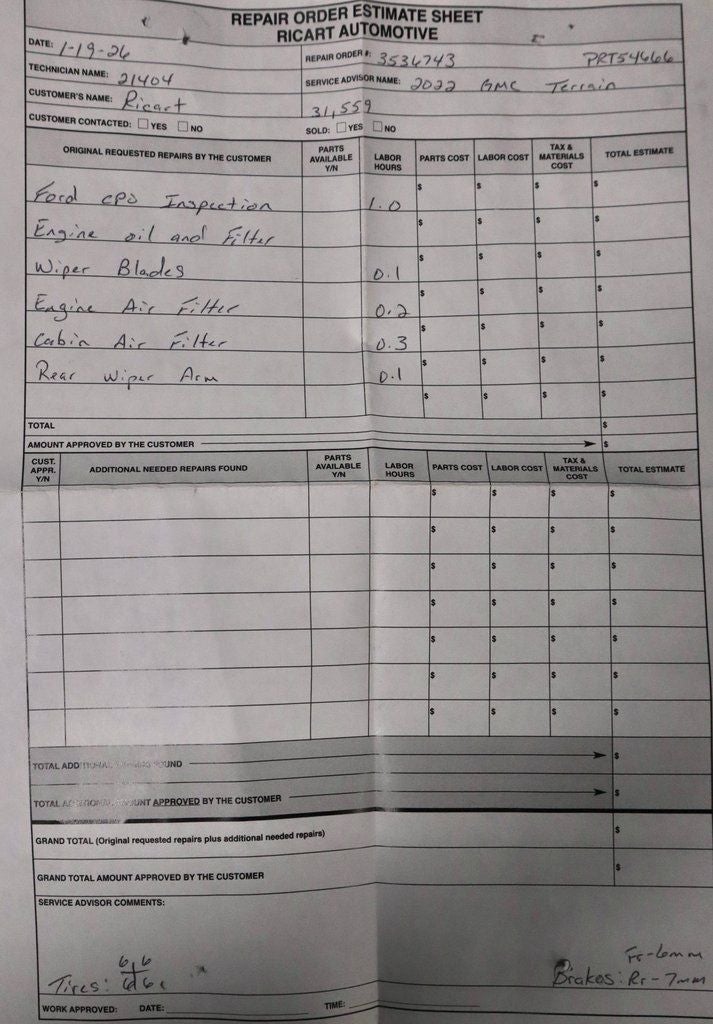 REPAIR ORDER ESTIMATE SHEET
RICART AUTOMOTIVE
DATE: 1-19-26
REPAIR ORDER #: 3534743 PRT54666
TECHNICIAN NAME: 21404
SERVICE ADVISOR NAME: 2022 GMC Terrain
CUSTOMER'S NAME: Ricart
31,559
CUSTOMER CONTACTED: YES NO
SOLD: YES NO
ORIGINAL REQUESTED REPAIRS BY THE CUSTOMER PARTS AVAILABLE Y/N LABOR HOURS PARTS COST LABOR COST TAX & MATERIALS COST TOTAL ESTIMATE
$ $ $ $
Ford CPO Inspection 1.0
$ $ $ $
Engine oil and Filter
$ $ $ $
Wiper Blades 0.1
$ $ $ $
Engine Air Filter 0.2
$ $ $ $
Cabin Air Filter 0.3
$ $ $ $
Rear Wiper Arm 0.1
$ $ $ $
TOTAL $
AMOUNT APPROVED BY THE CUSTOMER $
CUST. APPR. Y/N ADDITIONAL NEEDED REPAIRS FOUND PARTS AVAILABLE Y/N LABOR HOURS PARTS COST LABOR COST TAX & MATERIALS COST TOTAL ESTIMATE
$ $ $ $
$ $ $ $
$ $ $ $
$ $ $ $
$ $ $ $
$ $ $ $
$ $ $ $
TOTAL $
TOTAL APPROVED BY THE CUSTOMER $
GRAND TOTAL (Original requested repairs plus additional needed repairs) $
GRAND TOTAL AMOUNT APPROVED BY THE CUSTOMER $
SERVICE ADVISOR COMMENTS:
6 6
Tires: 6 6
Fr-6mm
Brakes: Rr-7mm
WORK APPROVED: DATE: TIME: